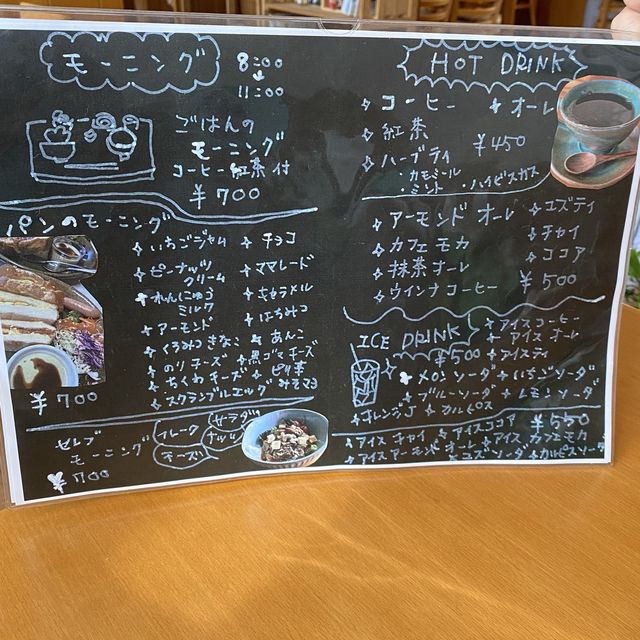 モーニング
8:00
↓
11:00
ごはんの
モーニング
コーヒー紅茶付
¥700
パンのモーニング
いちごジャム
チョコ
ピーナッツ
クリーム
ママレード
れんにゅう
ミルク
キャラメル
アーモンド
はちみつ
くろみつきなこ
あんこ
のりチーズ
黒ゴマチーズ
ちくわチーズ
ピリ辛
みそマヨ
スクランブルエッグ
¥700
セレブ
モーニング
¥700
フルーツ
サラダ
ナッツ
チーズ
HOT DRINK
コーヒー
オーレ
紅茶
¥450
ハーブティ
・カモミール
・ミント
・ハイビスカス
アーモンドオーレ
ユズティ
カフェモカ
チャイ
抹茶オーレ
ココア
ウインナコーヒー
¥500
ICE DRINK
¥500
アイスコーヒー
アイスオーレ
アイスティ
メロンソーダ
いちごソーダ
ブルーソーダ
レモンソーダ
オレンジJ
カルピス
¥550
アイスチャイ
アイスココア
アイスカフェモカ
アイスアーモンドオーレ
ユズソーダ
カルピスソーダ